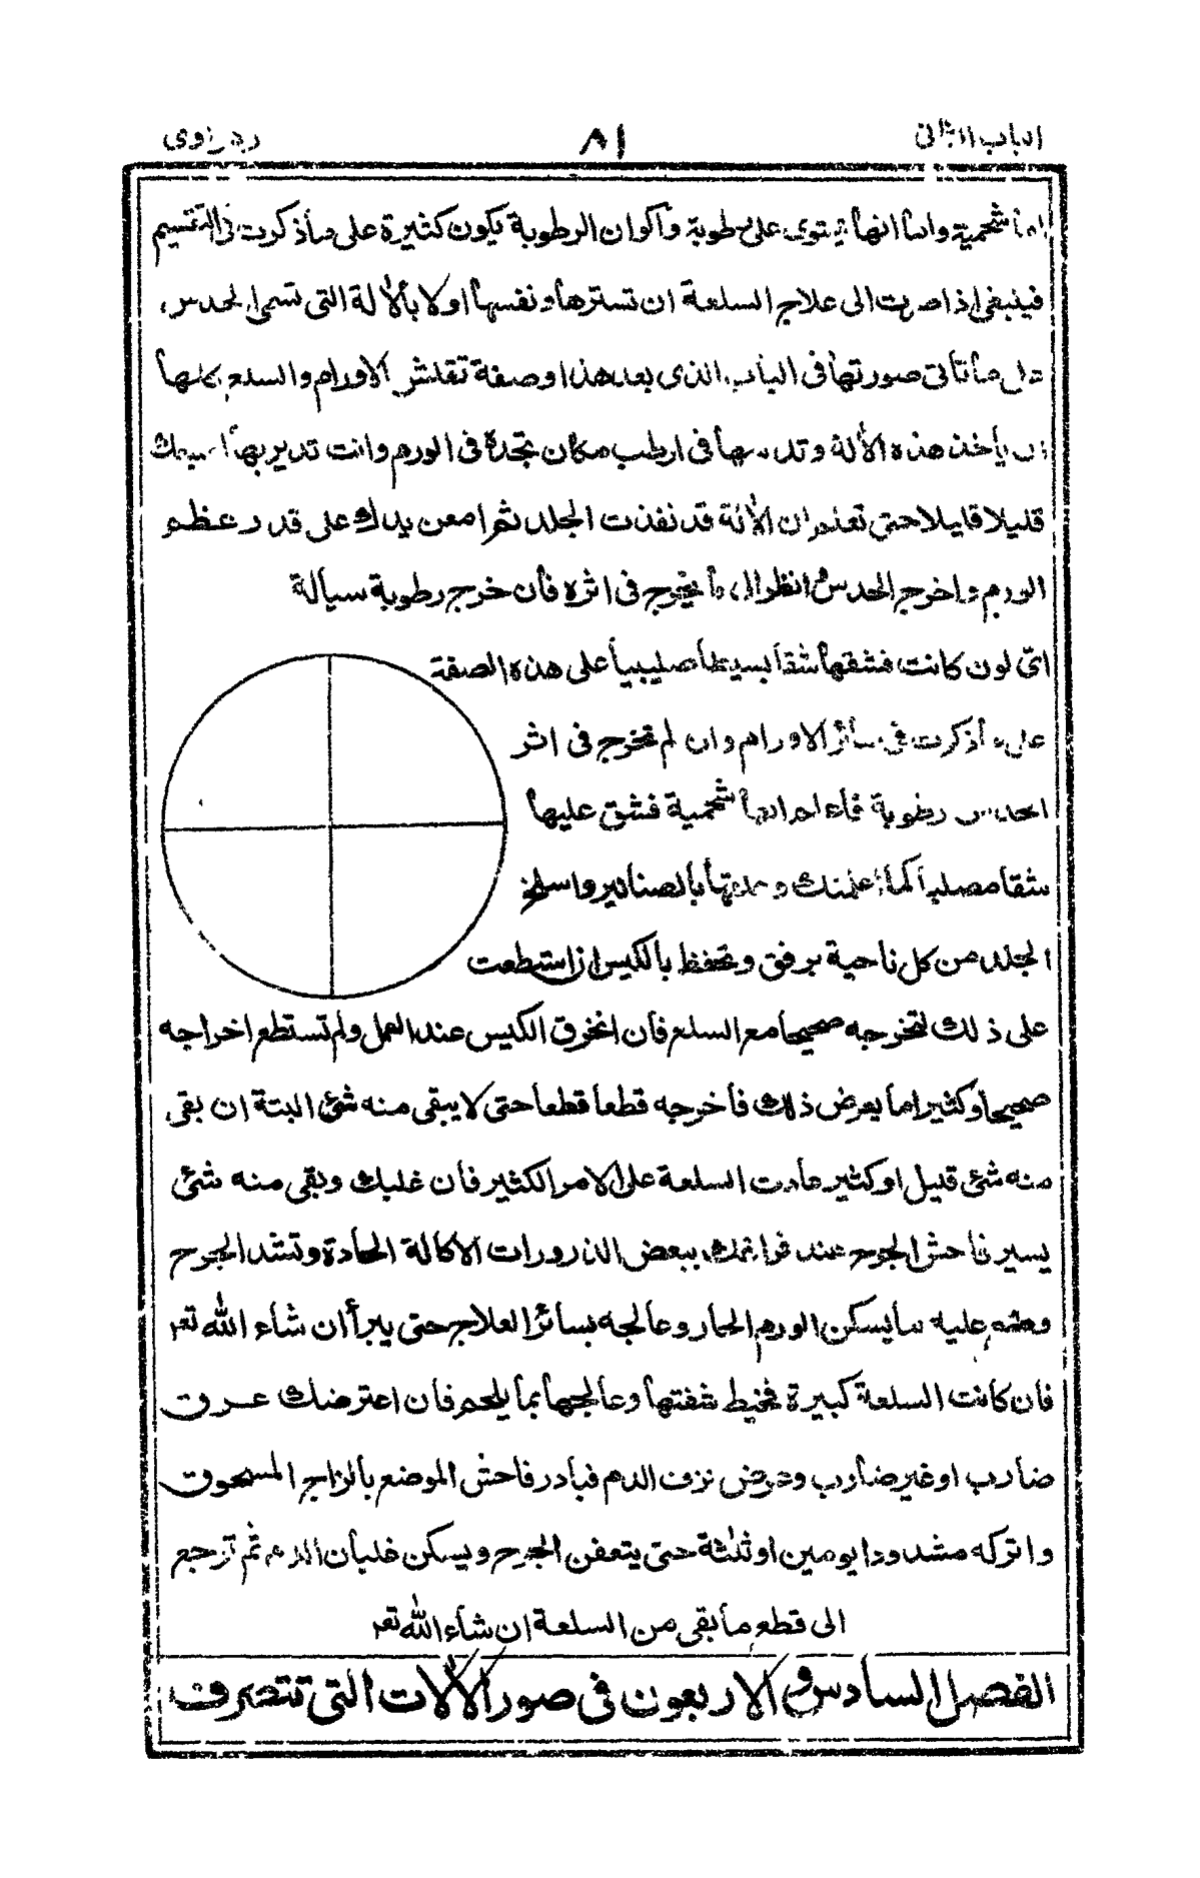 الباب الثانى ٨١ زهراوى
اما شحمية واما انها تحتوى على رطوبة وألوان الرطوبة يكون كثيرة على ما ذكرت فى التقسيم
فينبغى اذا صرت الى علاج السلعة ان تسترها ونفسها اولا بالألة التى تسمى
ما تأتى صورتها فى الباب الذى بعد هذا وصفة تفتش الاورام والسلع كلها
يأخذ هذه الألة و فى ارطب مكان تجدة فى الورم وانت تدير بها
قليلا قليلا حتى تعلم ان الألة قد نفذت الجلد ثم امعن يدك على قدر عظم
الورم واخرج الحدس انظر الى ما يخرج فى اثره فأن خرج رطوبة سيالة
اىّ لون كانت فشقها شقا بسيطا صليبيأ على هذه الصفة
ذكرت فى سأئر الاورام وان لم تخرج فى اثر
رطوبة شحمية فشق عليها
شقا مصلبا كما اعلمتك و بالصنانير واسلخ
الجلد من كل ناحية برفق وتحفظ بالكيس ان استطعت
على ذلك لتخرجه صحيحا مع السلع فأن انخرق الكيس عند العمل ولم تستطع اخراجه
صحيحا وكثيرا ما يعرض ذلك فأخرجه قطعا قطعا حتى لا يبقى منه شئ البتة ان بقى
منه شئ قليل او كثير عادت السلعة على الامر الكثير فأن غلبك وبقى منه شئ
يسير فاحش الجرح عند فراغك ببعض الذرورات الاكالة الحادة وتشد الجرح
عليه ما يسكن الورم الحار وعالجه بسائر العلاج حتى يبرأ ان شأء الله تعـ
فأن كانت السلعة كبيرة فخيط شفتها وعالجها بما يلحم فأن اعترضك عرق
ضارب او غير ضارب وعرض نزف الدم فبادر فاحش الموضع بالزاج المسحوق
واتركه مشدودا يومين او ثلثة حتى يتعفن الجرح ويسكن غليأن الدم ثم ترجع
الى قطع ما بقى من السلعة ان شأء الله تعـ
الفصل السادس والاربعون فى صور الألات التى تتصرف